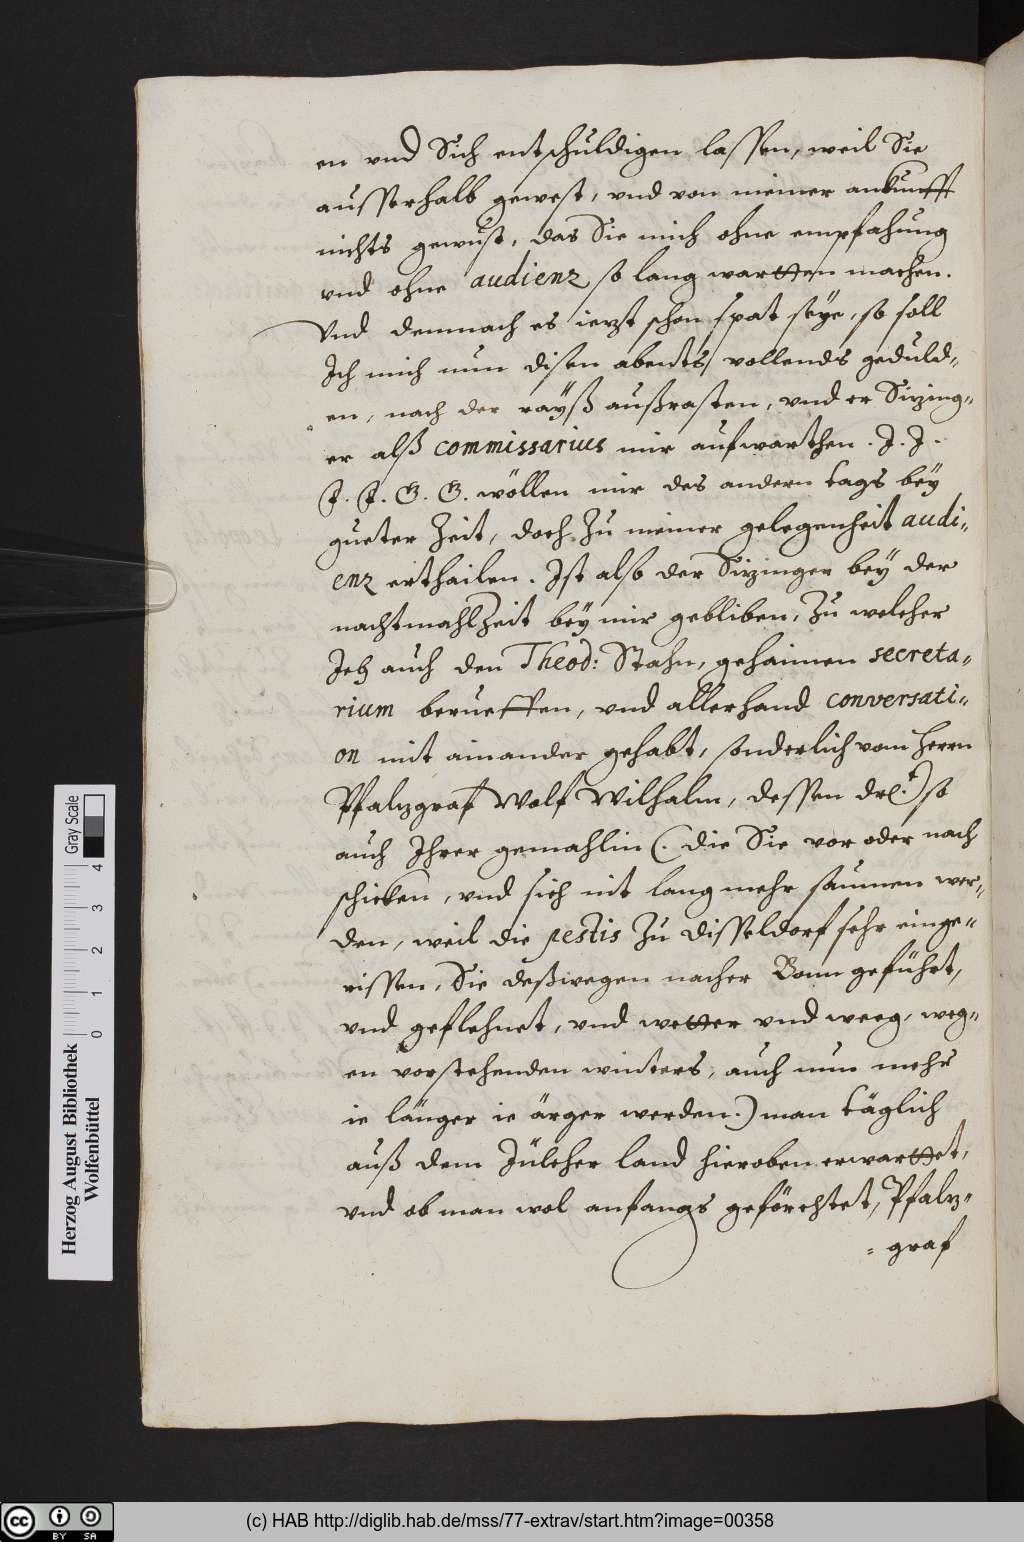 en vnd Sich entschuldigen lassen, weil Sie
ausserhalb gewest, vnd von meiner ankunfft
nichts gewust, das Sie mich ohne empfahung
vnd ohne audienz so lang wartten machen.
Vnd demnach es iezt schon spat seye, so soll
Ich mich nun disen abents, vollends geduld=
en, nach der rayß außrasten, vnd er Sizing=
er alß commissarius mir aufwarthen. J. J.
J. J. G. G. wöllen mir des andern tags bey
gueter Zeit, doch Zu meiner gelegenheit audi=
enz erthailen. Ist also der Sizinger bey der
nachtmahlZeit bey mir gebliben, Zu welcher
Ich auch den Theod: Stahn, gehaimen secreta=
rium berueffen, vnd allerhand conversati=
on mit ainander gehabt, sonderlich vom Herrn
Pfalzgraf Wolf Wilhalm, dessen drl.t) so
auch Ihrer gemahlin (. die Sie vor oder nach
schicken, vnd sich nit lang mehr saumen wer=
den, weil die pestis Zu Disseldorf sehr einge=
rissen, Sie deßwegen nacher Bonn geführt,
vnd geflehnet, vnd wetter vnd weeg, weg=
en vorstehenden winters, auch nun mehr
ie länger ie ärger werden.) man täglich
auß dem Jülcher land hieroben erwarttet,
vnd ob man wol anfangs geförchtet, Pfalz=
= graf
Herzog August Bibliothek
Wolfenbüttel
0 1 2 3 4
Gray Scale
cc BY SA
(c) HAB http://diglib.hab.de/mss/77-extrav/start.htm?image=00358